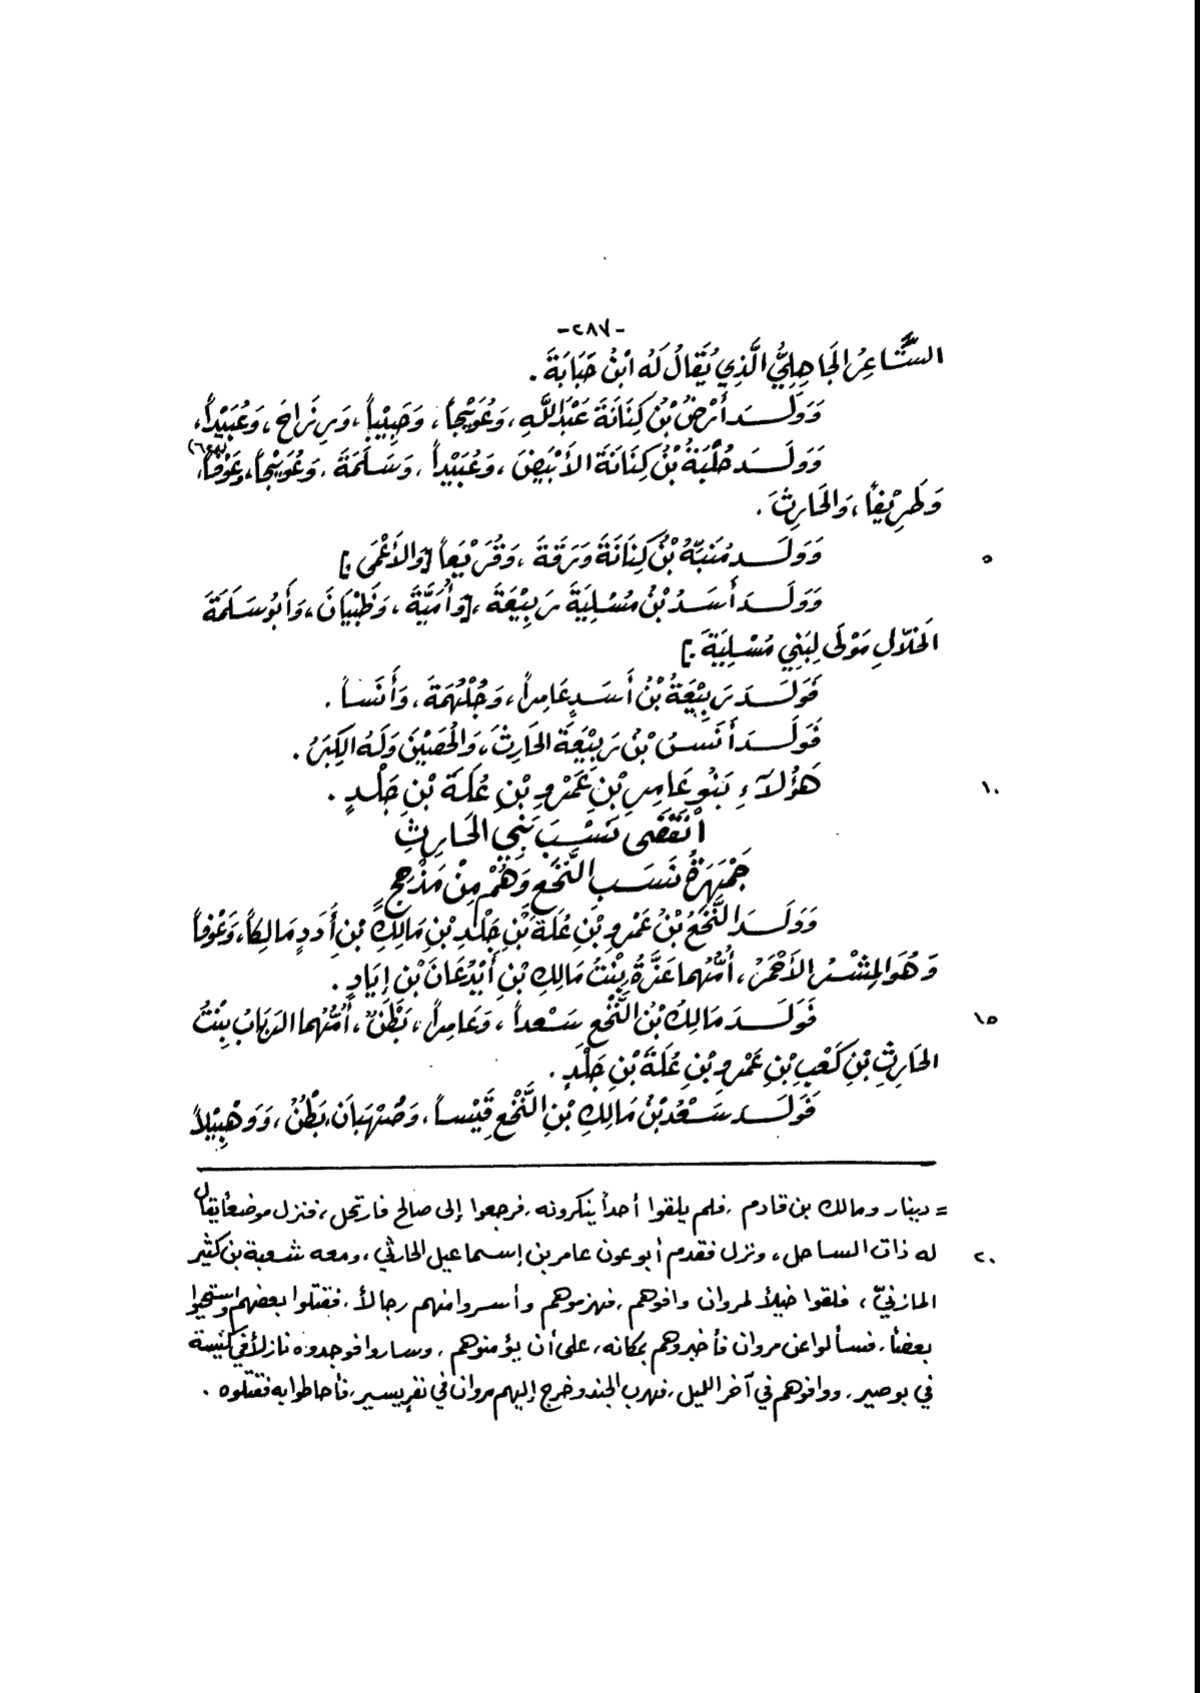 -٢٨٧-
الشَّاعِرُ الجَاهِلِيُّ الَّذِي يُقَالُ لَهُ ابْنُ حَبَابَةَ .
وَوَلَـــدَ أَرْضُ بْنُ كِنَانَةَ عَبْدَ اللَّهِ، وَعُوَيْجاً، وَحَبِيْباً، وَرِزَاحَ، وَعُبَيْداً،
وَوَلَـــدَ حُلْبَةُ بْنُ كِنَانَةَ الأَبْيَضَ، وَعُبَيْداً، وَسَلَمَةَ، وَعُوَيْجاً، وَعَوْفاً،
وَطَرِيْفاً، وَالحَارِثَ .
وَوَلَـــدَ مُنَبِّهُ بْنُ كِنَانَةَ وَرَقَةَ، وَقُرَيْعاً [وَالأَعْمَى .]
٥
وَوَلَـــدَ أَسَـدُ بْنُ مُسْلِيَةَ رَبِيْعَةَ، [وَأُمَيَّةَ، وَظَبْيَانَ، وَأَبُو سَلَمَةَ
الخَلاّلِ مَوْلَى لِبَنِي مُسْلِيَةَ .]
فَوَلَـــدَ رَبِيْعَةُ بْنُ أَسَـدٍ عَامِراً، وَجُلْهُمَةَ، وَأَنَساً .
فَوَلَـــدَ أَنَـسُ بْنُ رَبِيْعَةَ الحَارِثَ، وَالحُصَيْنَ وَلَهُ الكِبَرُ .
هَؤُلَآءِ بَنُو عَامِرِ بْنِ عَمْرِو بْنِ عُلَةَ بْنِ جَلْـدٍ .
١٠
انْقَضَى نَسَـبُ بَنِي الحَـارِثِ
جَمْهَرَةُ نَسَـبِ النَّخَعِ وَهُمْ مِنْ مَذْحِجٍ
وَوَلَـدَ النَّخَعُ بْنُ عَمْرِو بْنِ عُلَةَ بْنِ جَلْدِ بْنِ مَالِكِ بْنِ أُدَدٍ مَالِكاً، وَعَوْفاً
وَهُوَ المِشْـرُ الأَحْمَرُ، أُمُّهُمَا عَزَّةُ بِنْتُ مَالِكِ بْنِ أَيْدُعَانَ بْنِ إِيَادٍ .
فَوَلَـــدَ مَالِكُ بْنُ النَّخَعِ سَـعْداً، وَعَامِراً، بَطْنٌ، أُمُّهُمَا الرَبَابُ بِنْتُ
١٥
الحَارِثِ بْنِ كَعْبِ بْنِ عَمْرِو بْنِ عُلَةَ بْنِ جَلْدٍ .
فَوَلَـــدَ سَـعْدُ بْنُ مَالِكِ بْنِ النَّخَعِ قَيْسـاً، وَصُهْبَانَ، بَطْنٌ، وَوَهْبِيْلاً
= دينار ومالك بن قادم، فلم يلقوا أحداً ينكرونه، فرجعوا إلى صالح فارتحل، فنزل موضعاً يقال
له ذات الساحل، ونزل فقدم أبو عون عامر بن إسماعيل الحارثي، ومعه شعبة بن كثير
٢٠
المازنيّ، فلقوا خيلاً لمروان وافوهم، فهزموهم وأسروا منهم رجالاً، فقتلوا بعضهم واستحيوا
بعضاً، فسألوا عن مروان فأخبروهم بمكانه، على أن يؤمنوهم، وساروا فوجدوه نازلاً في كنيسة
في بوصير، ووافوهم في آخر الليل، فهرب الجند وخرج إليهم مروان في نفر يسير، فأحاطوا به فقتلوه .